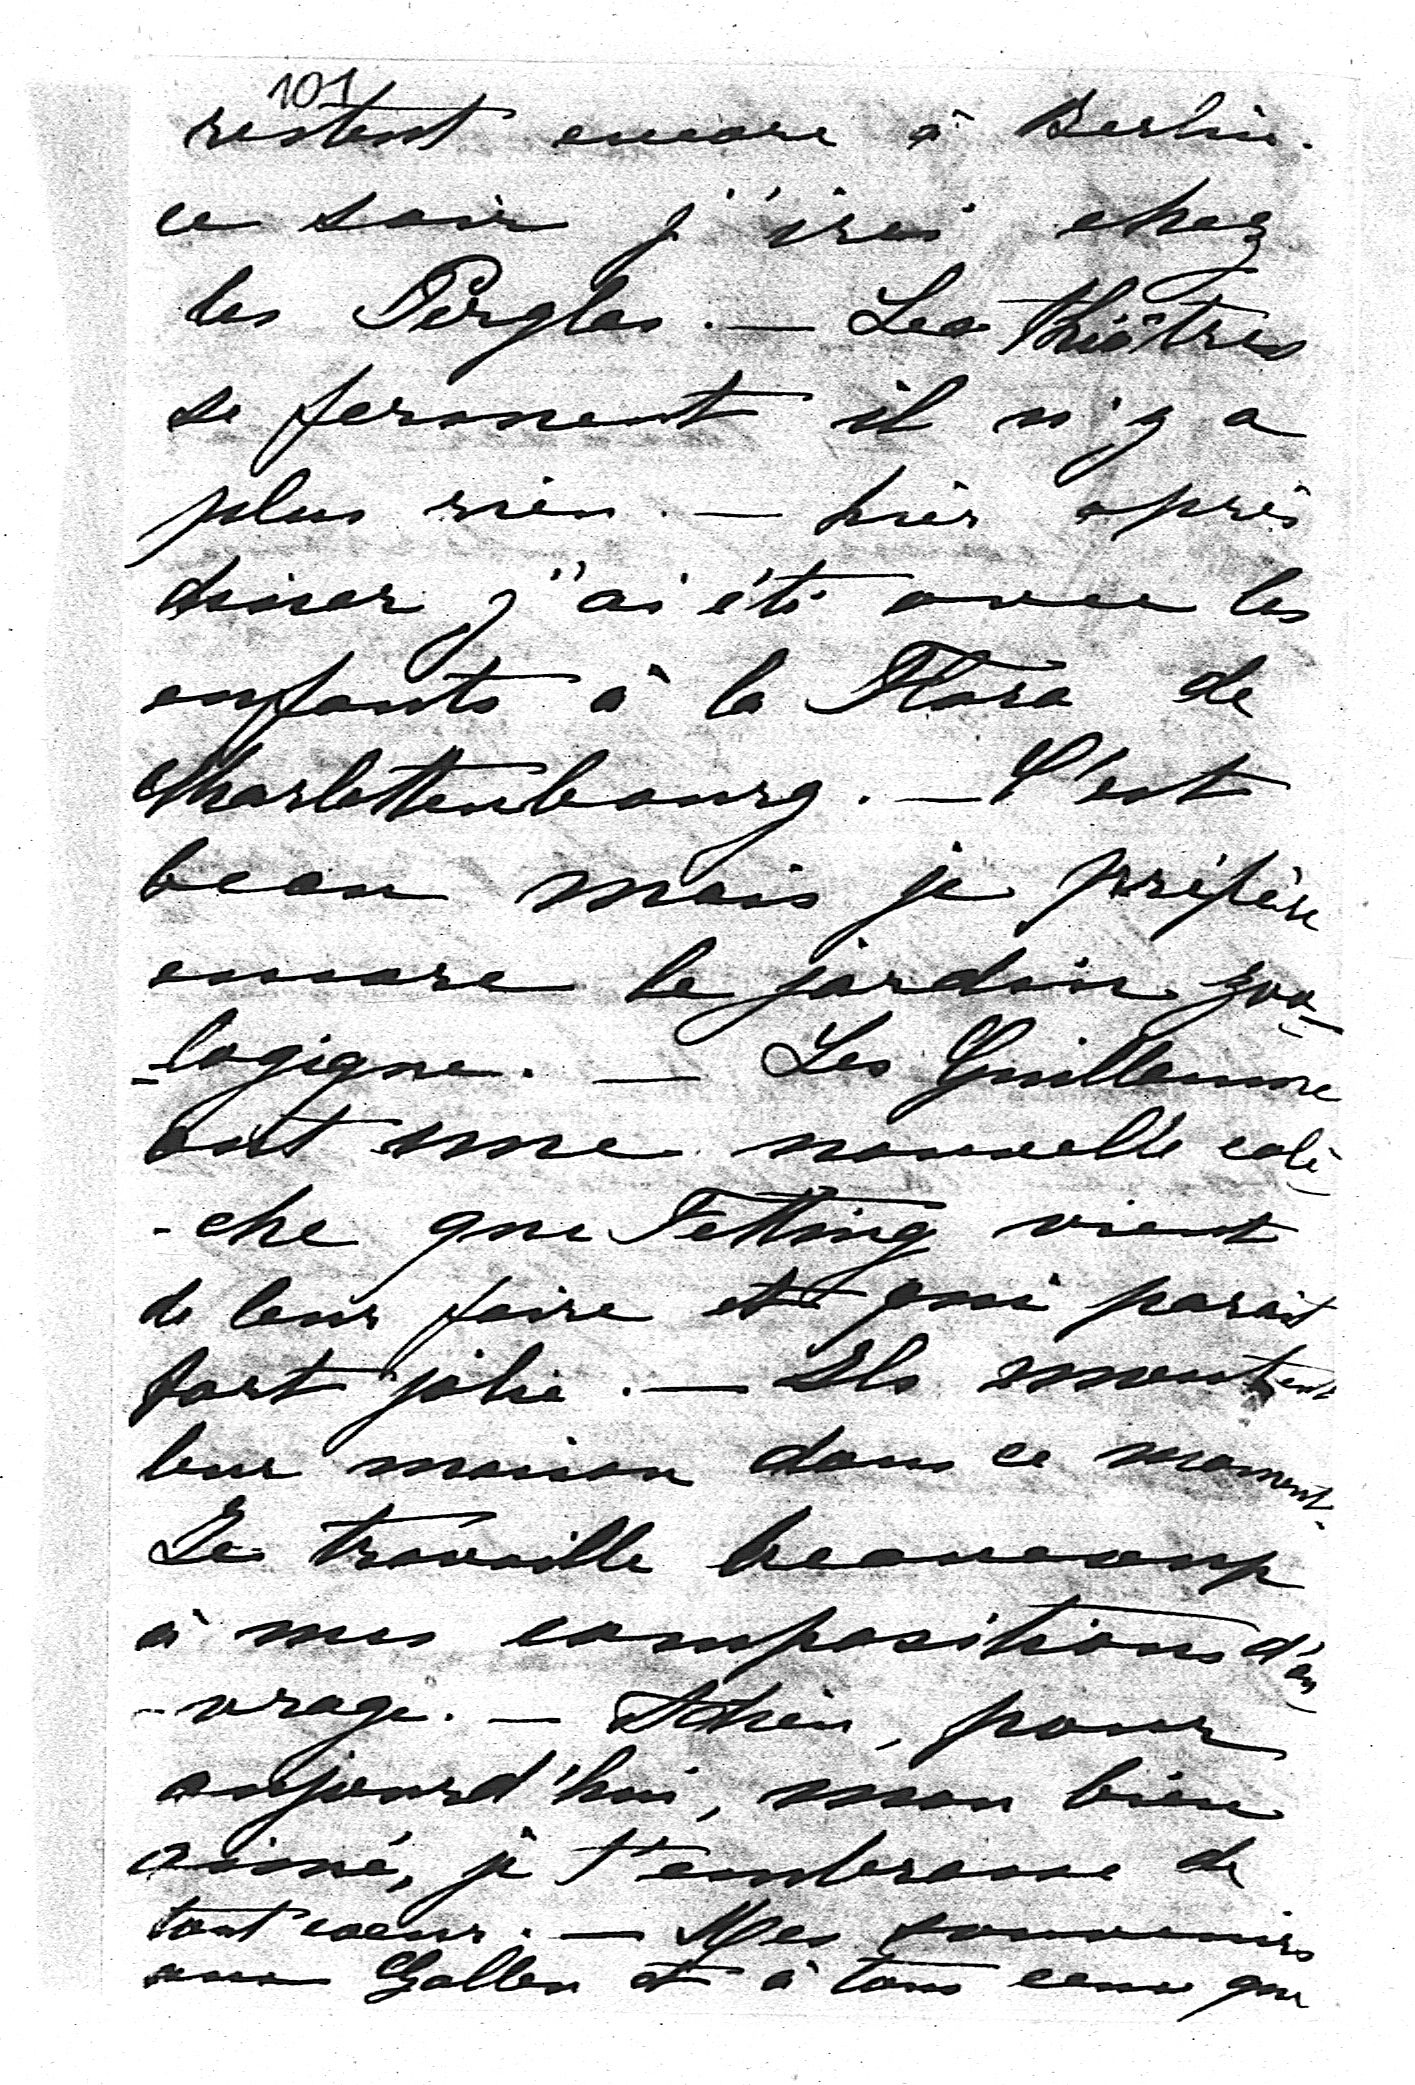 101
restent encore à Berlin.
ce soir j'irai chez
les Perglas. — Les théâtres
se ferment il n'y a
plus rien. — hier après
diner j'ai été avec les
enfants à la Flora de
Charlottenbourg. — C'est
beau mais je préfère
encore le jardin zoo-
-logique. — Les Guillaume
ont une nouvelle calè
-che que Fetting vient
de leur faire et qui parait
fort jolie. — Ils montent
leur maison dans ce moment.
Je travaille beaucoup
à mes compositions d'ou
-vrage. — Adieu, pour
aujourd'hui, mon bien
aimé, je t'embrasse de
tout coeur. — Mes souvenirs
aux Gallen et à tous ceux que